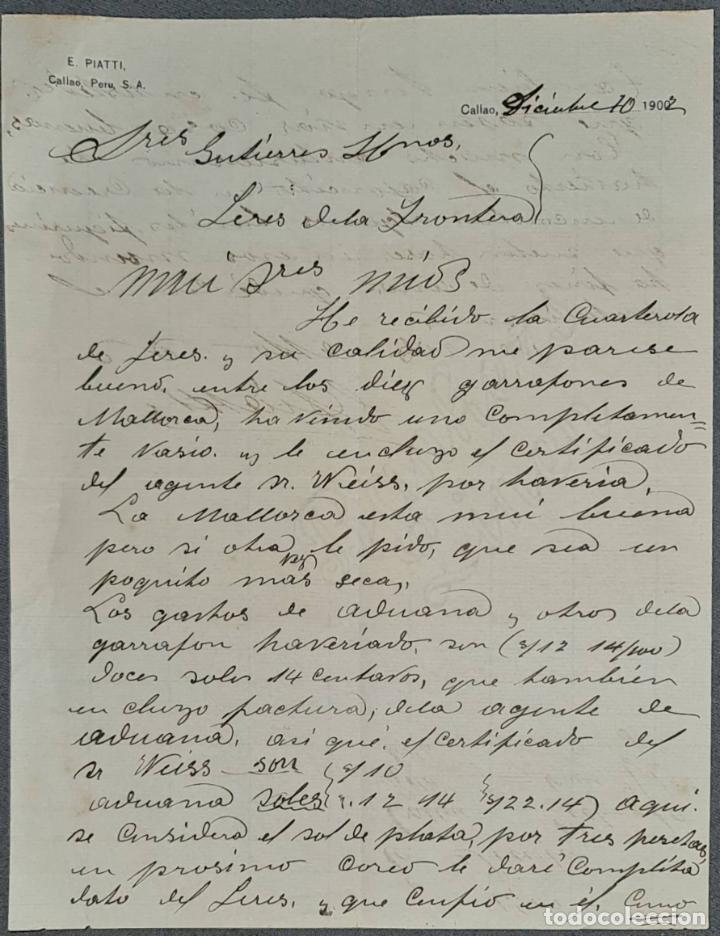 E. PIATTI,
Callao, Peru, S. A.
Callao, Diciembre 10 1902
Sres Gutiérres Hnos,
Jeres dela Frontera
mui Sres mios
He recibido la Cuarterola
de Jeres. y su calidad me parese
bueno, entre los diez garrafones de
Mallorca, havindo uno completamen=
te vasio. y le encluzo el certificado
del agente sr. Weiss, por haveria,
La Mallorca esta mui buena
pero si otra vez le pido, que sea un
poquito mas seca,
Los gastos de aduana y otros dela
garrafon haveriado, son (s/12 14/100)
doces soles 14 centavos, que también
encluzo factura, dela agente de
aduana, asi qué, el certificado del
sr Weiss son s/10
aduana soles s. 12 14 s/22.14) aqui
se considera el sol de plata, por tres pesetas,
en prosimo coreo le daré complita
dato del Jeres, y que confio en él, como
todocoleccion